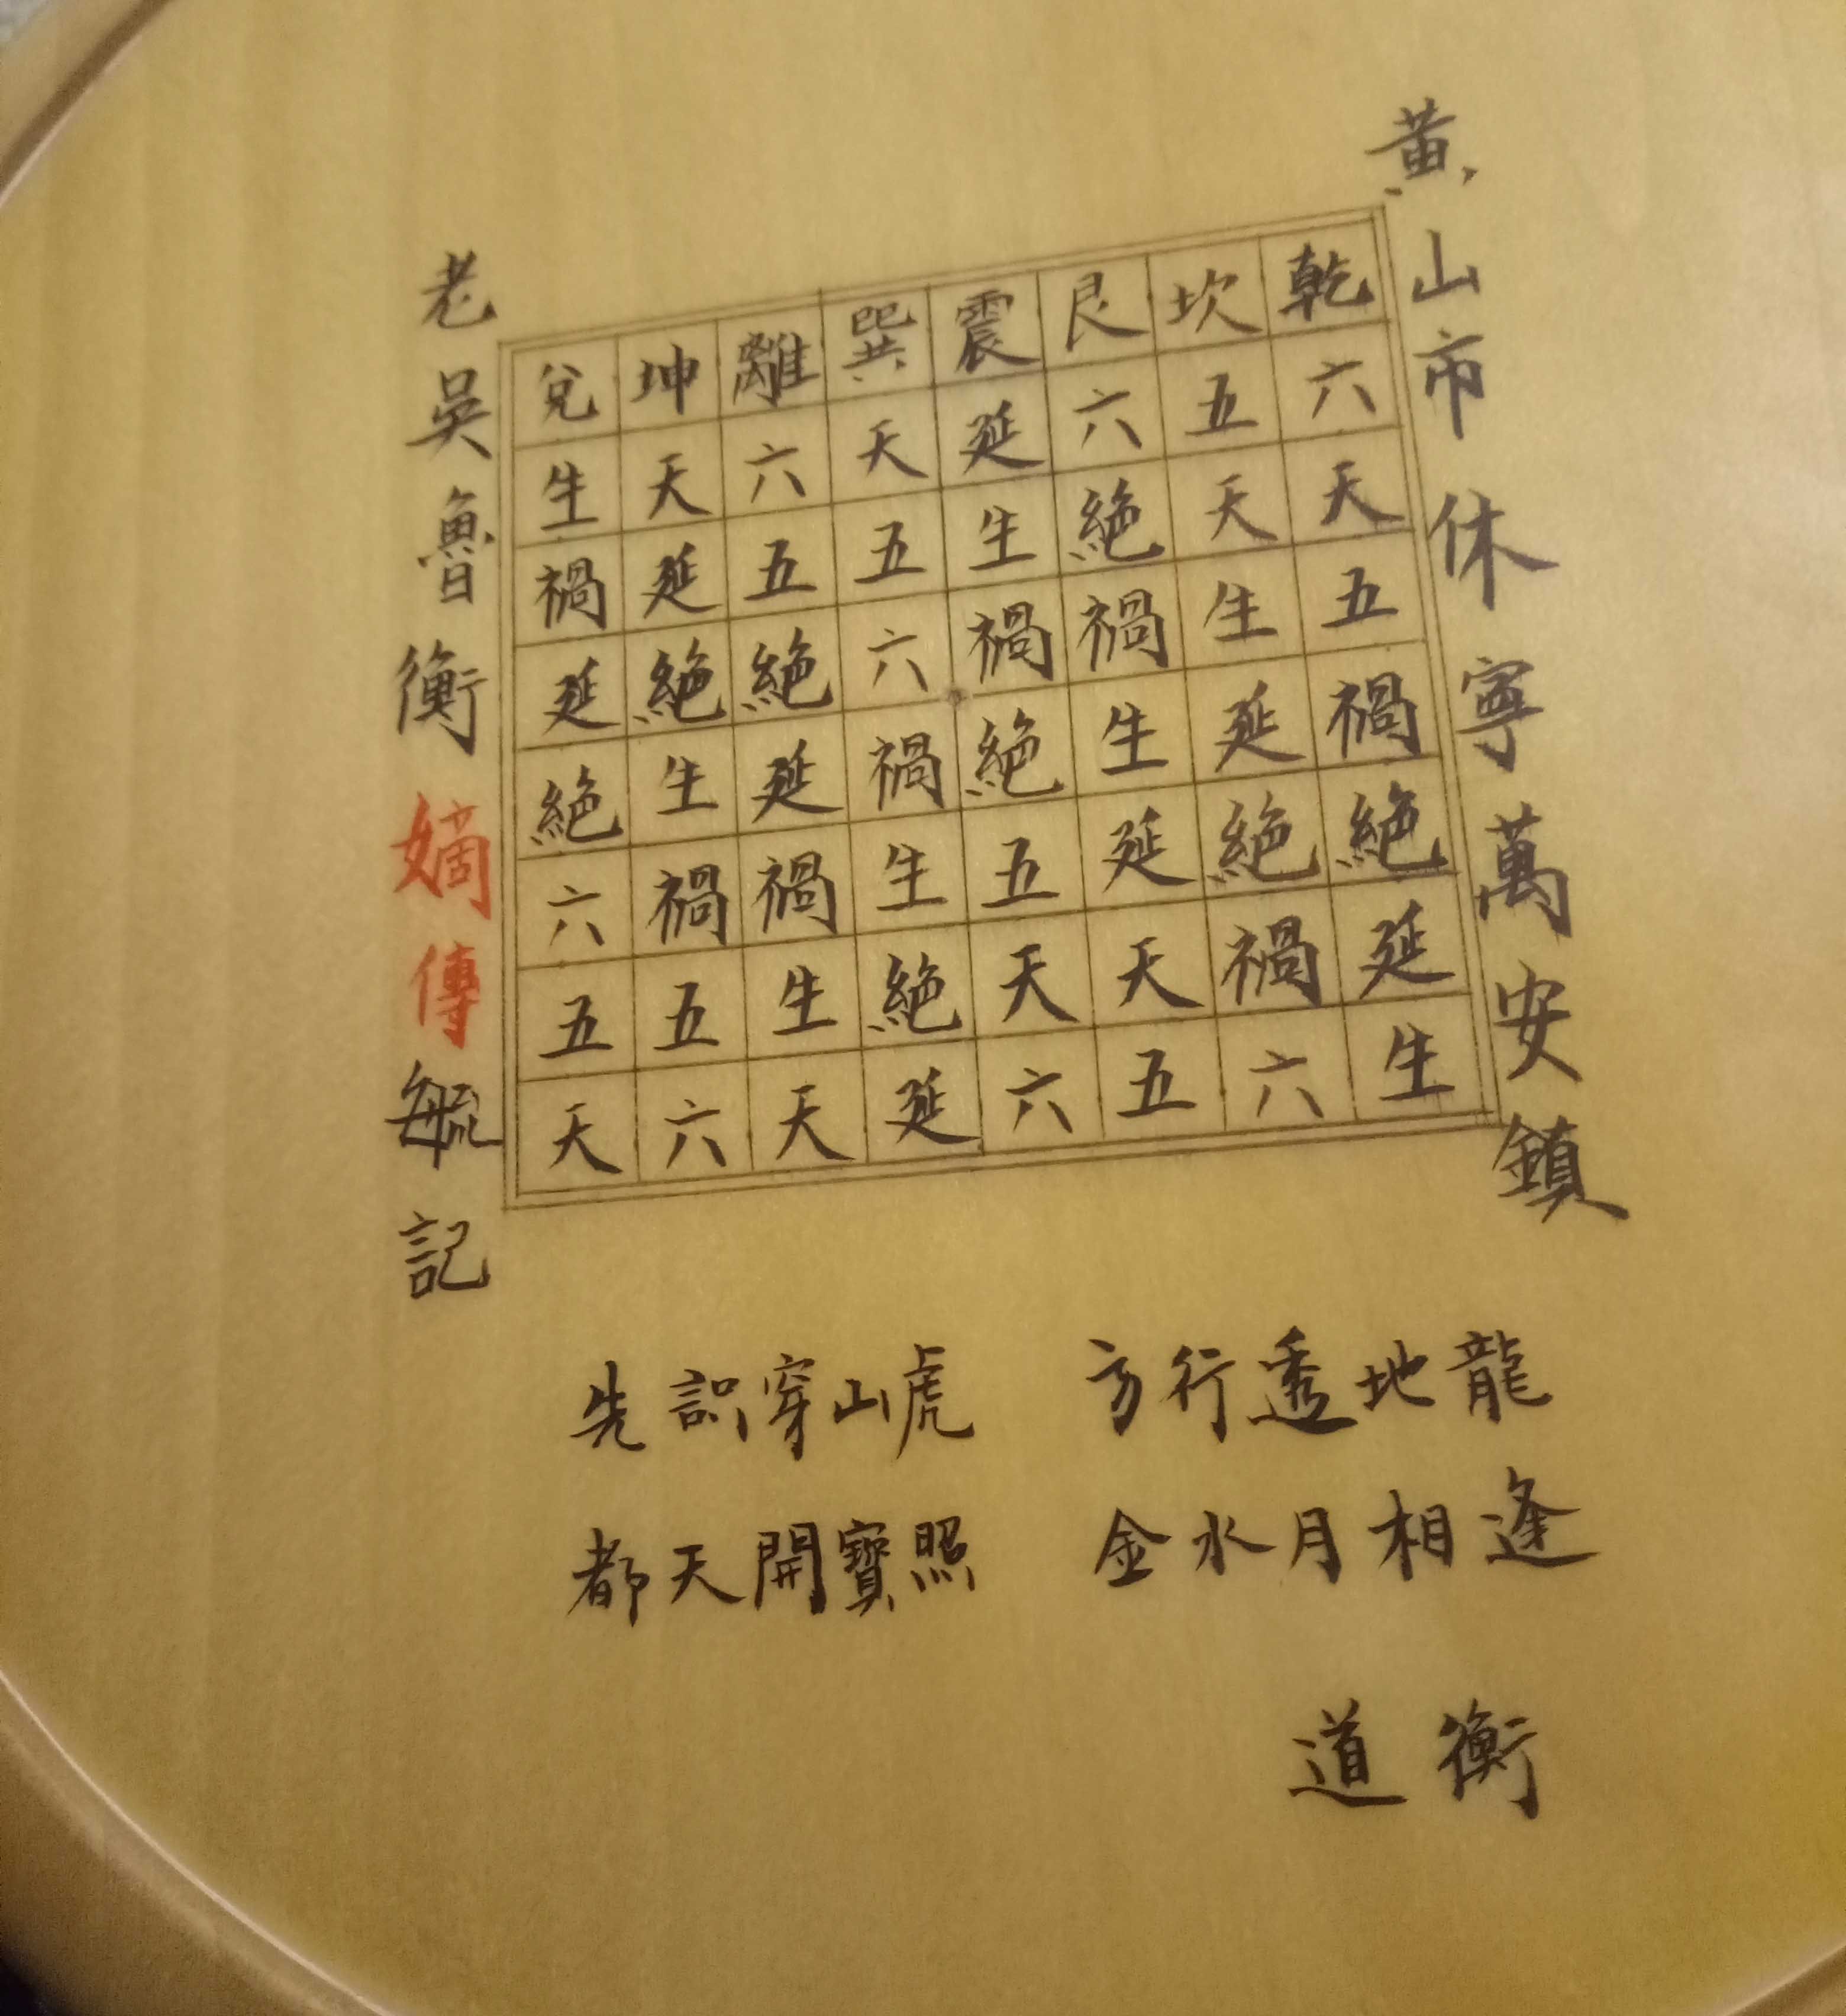 黃山市休寧萬安鎮
乾六天五禍絕延生
坎五天生延絕禍六
艮六絕禍生延天五
震延生禍絕五天六
巽天五六禍生絕延
離六五絕延禍生天
坤天延絕生禍五六
兌生禍延絕六五天
老吳魯衡嫡傳毓記
先識穿山虎 方行透地龍
都天開寶照 金水月相逢
道衡